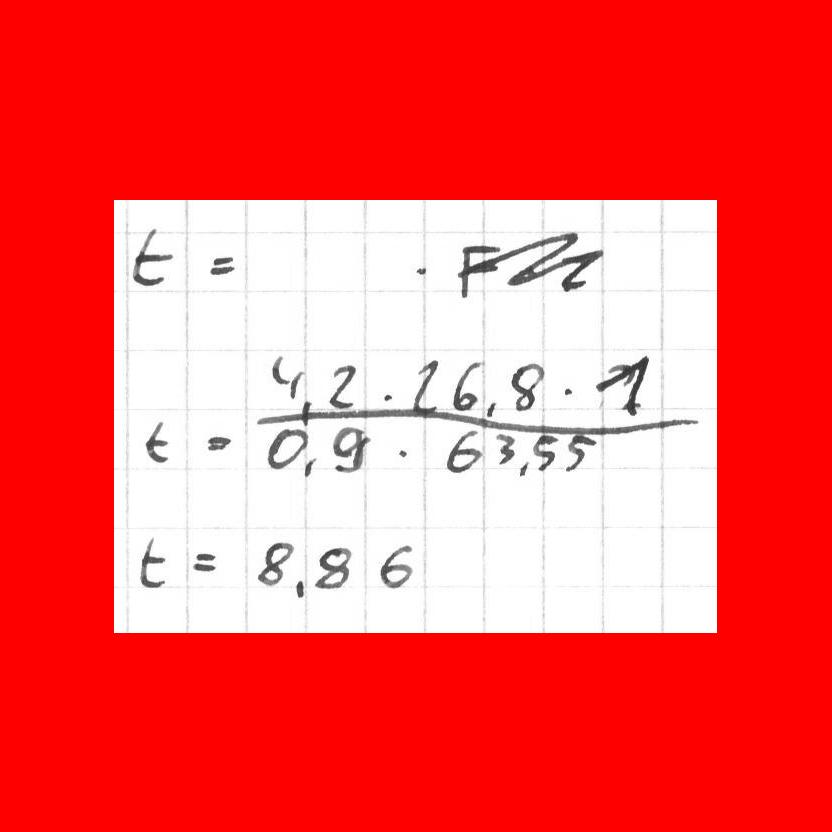 t = · F
t = 4,2 · 26,8 · 1 / 0,9 · 63,55
t = 8,86